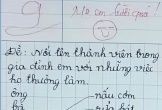 9
Mẹ em giỏi quá!
Đề: Nối tên thành viên trong
gia đình em với những việc
họ thường làm.
ông
nấu cơm
bà
rửa bát